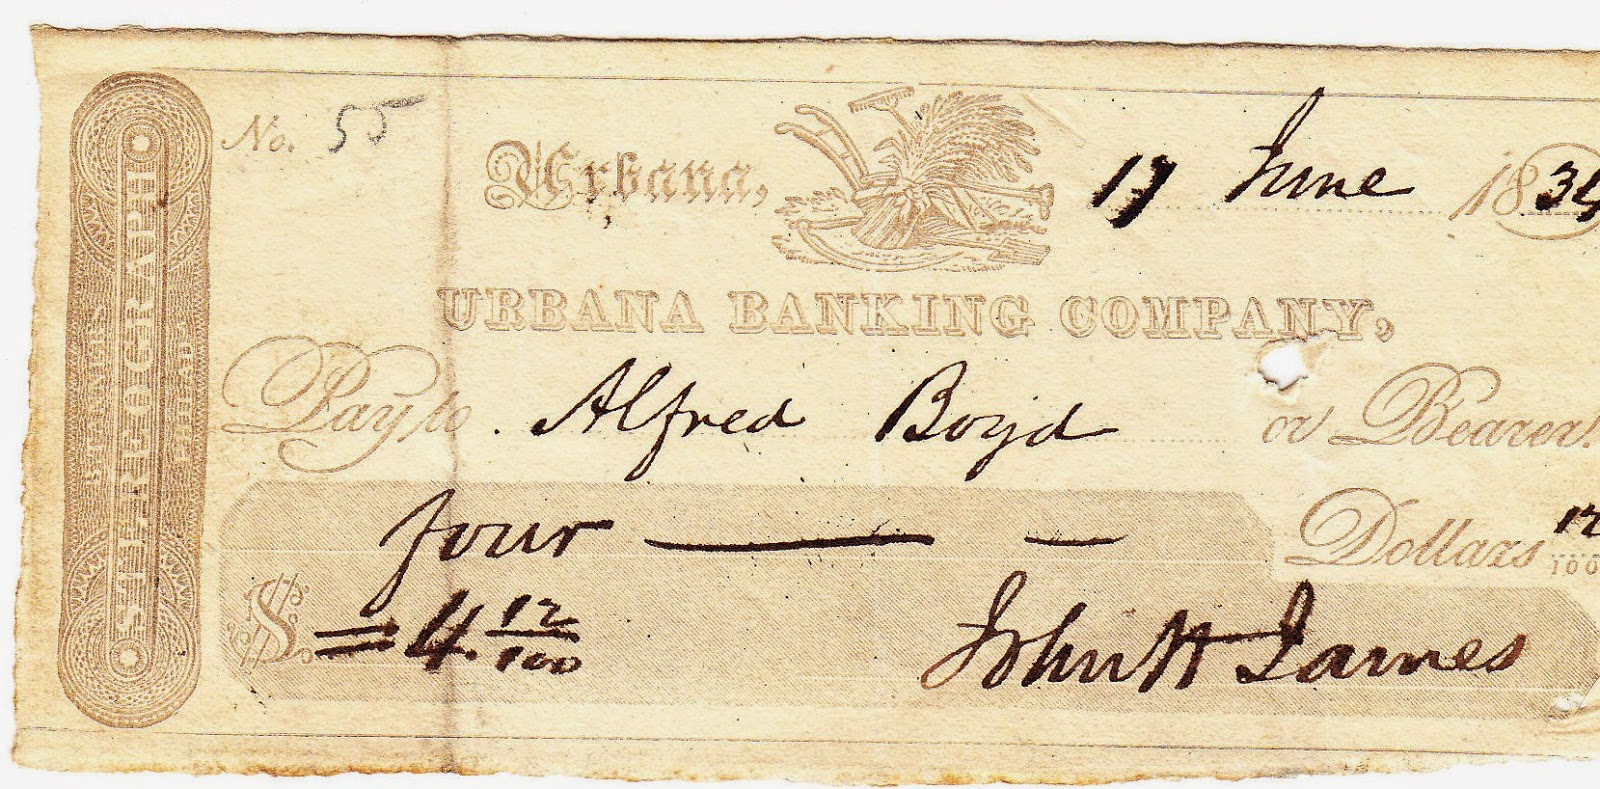 No. 55
Urbana, 17 June 1834
URBANA BANKING COMPANY,
Pay to Alfred Boyd or Bearer.
four Dollars 12/100
$ 4.12/100
John H James
STILES
SIDEROGRAPH